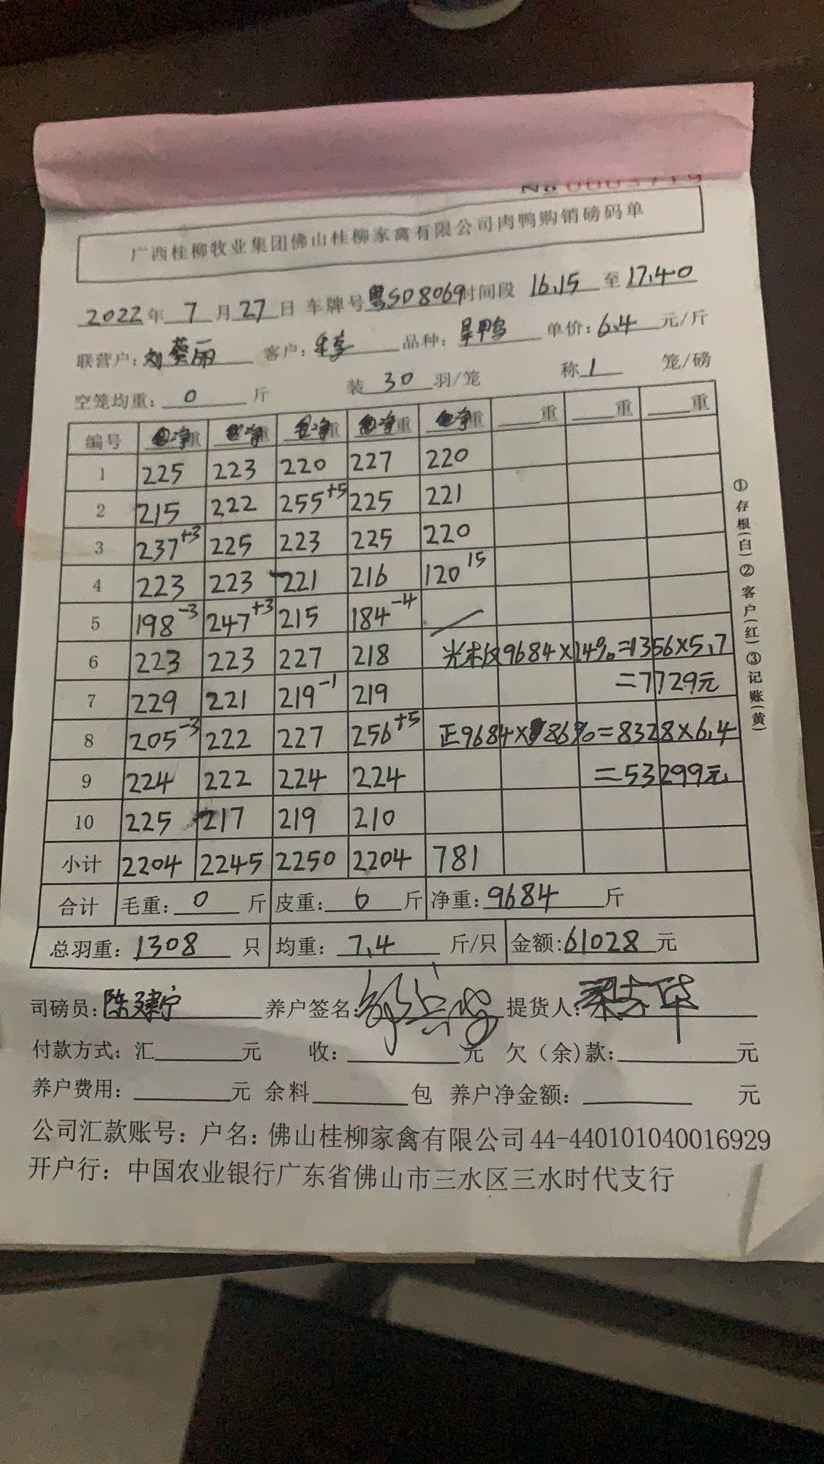 No 0003719
广西桂柳牧业集团佛山桂柳家禽有限公司肉鸭购销磅码单
2022年 7 月 27 日 车牌号 粤SD8069 时间段 16.15 至 17.40
联营户: 刘葵丽 客户: 品种: 旱鸭 单价: 6.4 元/斤
空笼均重: 0 斤 装 30 羽/笼 称 1 笼/磅
编号 净重 净重 净重 净重 净重 重 重 重
1 225 223 220 227 220
2 215 222 255+5 225 221
3 237+3 225 223 225 220
4 223 223 221 216 120 15
5 198-3 247+3 215 184-4
6 223 223 227 218 9684×14%=1356×5.7
7 229 221 219-1 219 =7729元
8 205-3 222 227 256+5 正9684×86%=8328×6.4
9 224 222 224 224 =53299元
10 225 217 219 210
小计 2204 2245 2250 2204 781
合计 毛重: 0 斤 皮重: 斤 净重: 9684 斤
总羽重: 1308 只 均重: 7.4 斤/只 金额: 61028 元
司磅员: 陈建宁 养户签名: 提货人:
付款方式: 汇 元 收: 元 欠(余)款: 元
养户费用: 元 余料 包 养户净金额: 元
公司汇款账号: 户名: 佛山桂柳家禽有限公司 44-440101040016929
开户行: 中国农业银行广东省佛山市三水区三水时代支行
①存根(白)②客户(红)③记账(黄)